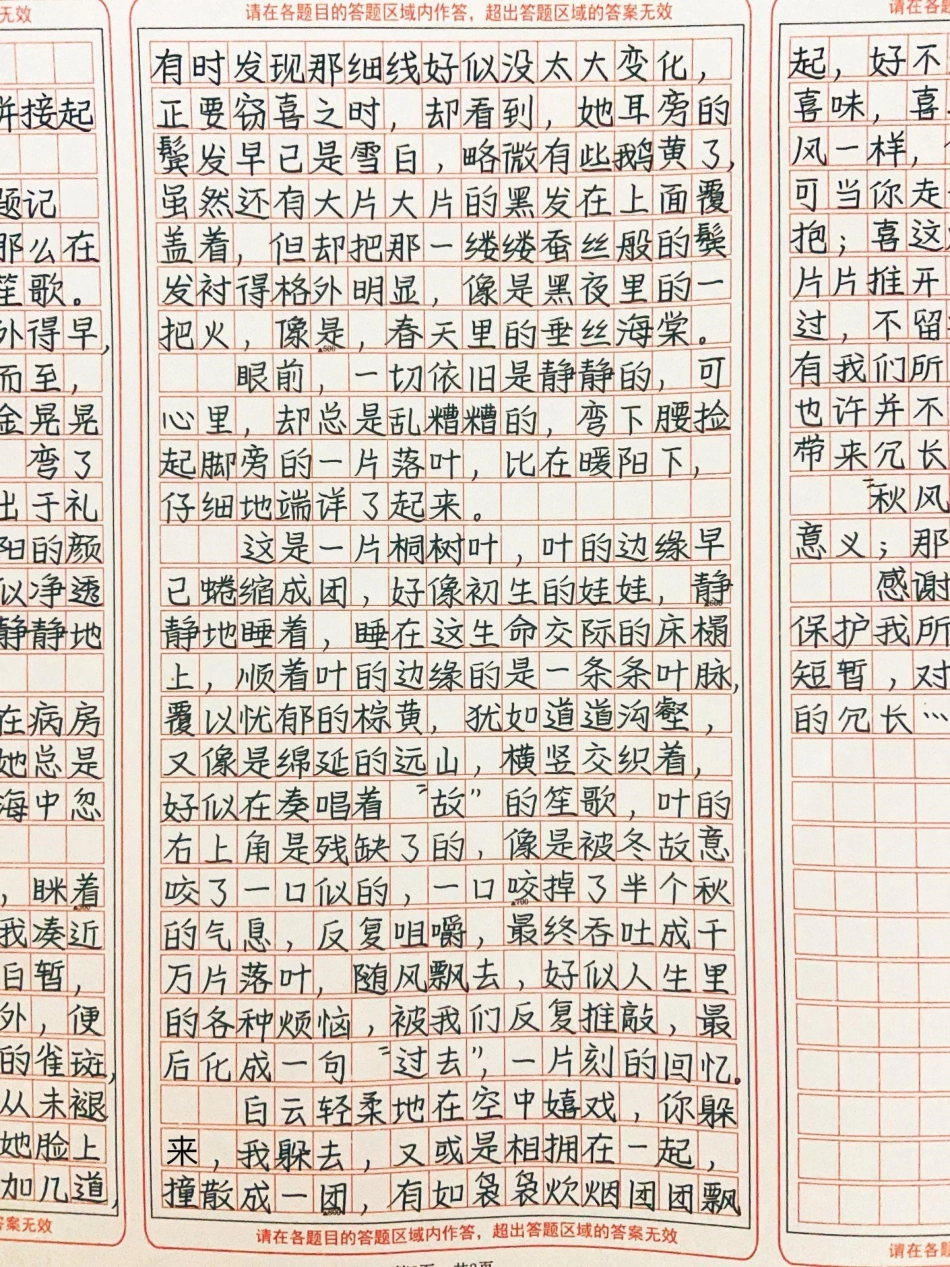 无效
并接起
题记
那么在
笙歌。
外得早,
而至,
金晃晃
弯了
出于礼
阳的颜
似净透
静静地
在病房
她总是
海中忽
,眯着
我凑近
白暂,
外,便
的雀斑,
从未褪
她脸上
加几道,
答案无效
请在各题目的答题区域内作答,超出答题区域的答案无效
有时发现那细线好似没太大变化,
正要窃喜之时,却看到,她耳旁的
鬓发早已是雪白,略微有些鹅黄了,
虽然还有大片大片的黑发在上面覆
盖着,但却把那一缕缕蚕丝般的鬓
发衬得格外明显,像是黑夜里的一
把火,像是,春天里的垂丝海棠。
眼前,一切依旧是静静的,可
心里,却总是乱糟糟的,弯下腰捡
起脚旁的一片落叶,比在暖阳下,
仔细地端详了起来。
这是一片桐树叶,叶的边缘早
已蜷缩成团,好像初生的娃娃,静
静地睡着,睡在这生命交际的床榻
上,顺着叶的边缘的是一条条叶脉,
覆以忧郁的棕黄,犹如道道沟壑,
又像是绵延的远山,横竖交织着,
好似在奏唱着“故”的笙歌,叶的
右上角是残缺了的,像是被冬故意
咬了一口似的,一口咬掉了半个秋
的气息,反复咀嚼,最终吞吐成千
万片落叶,随风飘去,好似人生里
的各种烦恼,被我们反复推敲,最
后化成一句“过去”,一片刻的回忆。
白云轻柔地在空中嬉戏,你躲
来,我躲去,又或是相拥在一起,
撞散成一团,有如袅袅炊烟团团飘
请在各题目的答题区域内作答,超出答题区域的答案无效
请在各题
起,好不
喜味,喜
风一样,
可当你走
抱;喜这
片片推开
过,不留
有我们所
也许并不
带来冗长
“秋风
意义;那
感谢
保护我所
短暂,对
的冗长…
请在各题